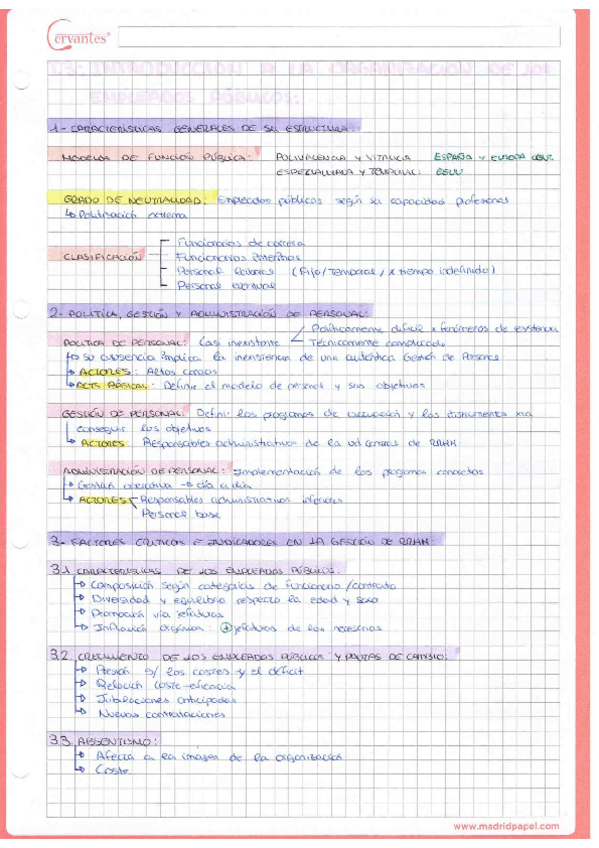 Cervantes®
T.3- INTRODUCCIÓN A LA ORGANIZACIÓN DE LOS
EMPLEADOS PÚBLICOS:
1- CARACTERÍSTICAS GENERALES DE SU ESTRUCTURA:
MODELOS DE FUNCIÓN PÚBLICA: POLIVALENCIA Y VITALICIA ESPAÑA Y EUROPA
ESPECIALIZADA Y TEMPORAL: EEUU
GRADO DE NEUTRALIDAD: Empleados públicos según su capacidad profesional
↳ Politización extrema
CLASIFICACIÓN
Funcionarios de carrera
Funcionarios interinos
Personal laboral (Fijo/Temporal/x tiempo indefinido)
Personal eventual
2- POLÍTICA, GESTIÓN Y ADMINISTRACIÓN DE PERSONAL:
POLÍTICA DE PERSONAL: Casi inexistente
Políticamente difícil x fenómenos de resistencia
Técnicamente complicada
↳ su ausencia implica la inexistencia de una auténtica Gestión de Personal
↳ ACTORES: Altos cargos
↳ ACTS BÁSICAS: Define el modelo de personal y sus objetivos
GESTIÓN DE PERSONAL: Define los programas de actuación y los instrumentos xa
conseguir los objetivos
↳ ACTORES: Responsables administrativos de la ud central de RRHH
ADMINISTRACIÓN DE PERSONAL: Implementación de los programas concretos
↳ Gestión operativa → día a día
↳ ACTORES
Responsables administrativos inferiores
Personal base
3- FACTORES CRÍTICOS E INDICADORES EN LA GESTIÓN DE RRHH:
3.1 CARACTERÍSTICAS DE LOS EMPLEADOS PÚBLICOS:
↳ Composición según categorías de funcionario/contrato
↳ Diversidad y equilibrio respecto la edad y sexo
↳ Promoción vía jefaturas
↳ Inflación orgánica: ⊕ jefaturas de las necesarias
3.2. CRECIMIENTO DE LOS EMPLEADOS PÚBLICOS Y PAUTAS DE CAMBIO:
↳ Presión s/ los costes y el déficit
↳ Relación coste-eficacia
↳ Jubilaciones anticipadas
↳ Nuevas contrataciones
3.3. ABSENTISMO:
↳ Afecta a la imagen de la organización
↳ Coste
www.madridpapel.com